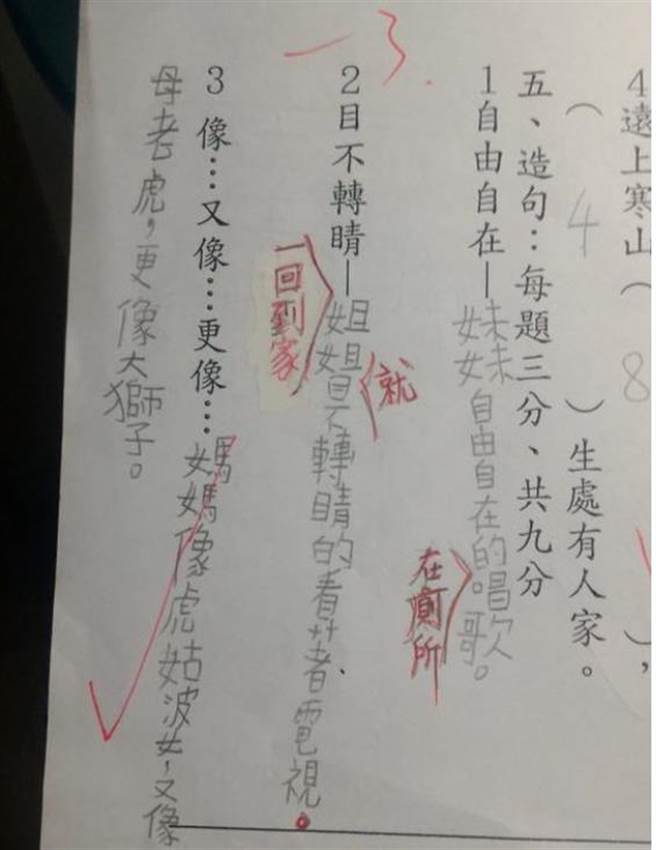 4遠上寒山( 8 ),
( 4 )生處有人家。
五、造句:每題三分、共九分
1自由自在—妹妹自由自在的唱歌。
在廁所
2目不轉睛—姐姐目不轉睛的看著電視。
就
一回到家
-3.
3 像…又像…更像…媽媽像虎姑婆,又像
母老虎,更像大獅子。